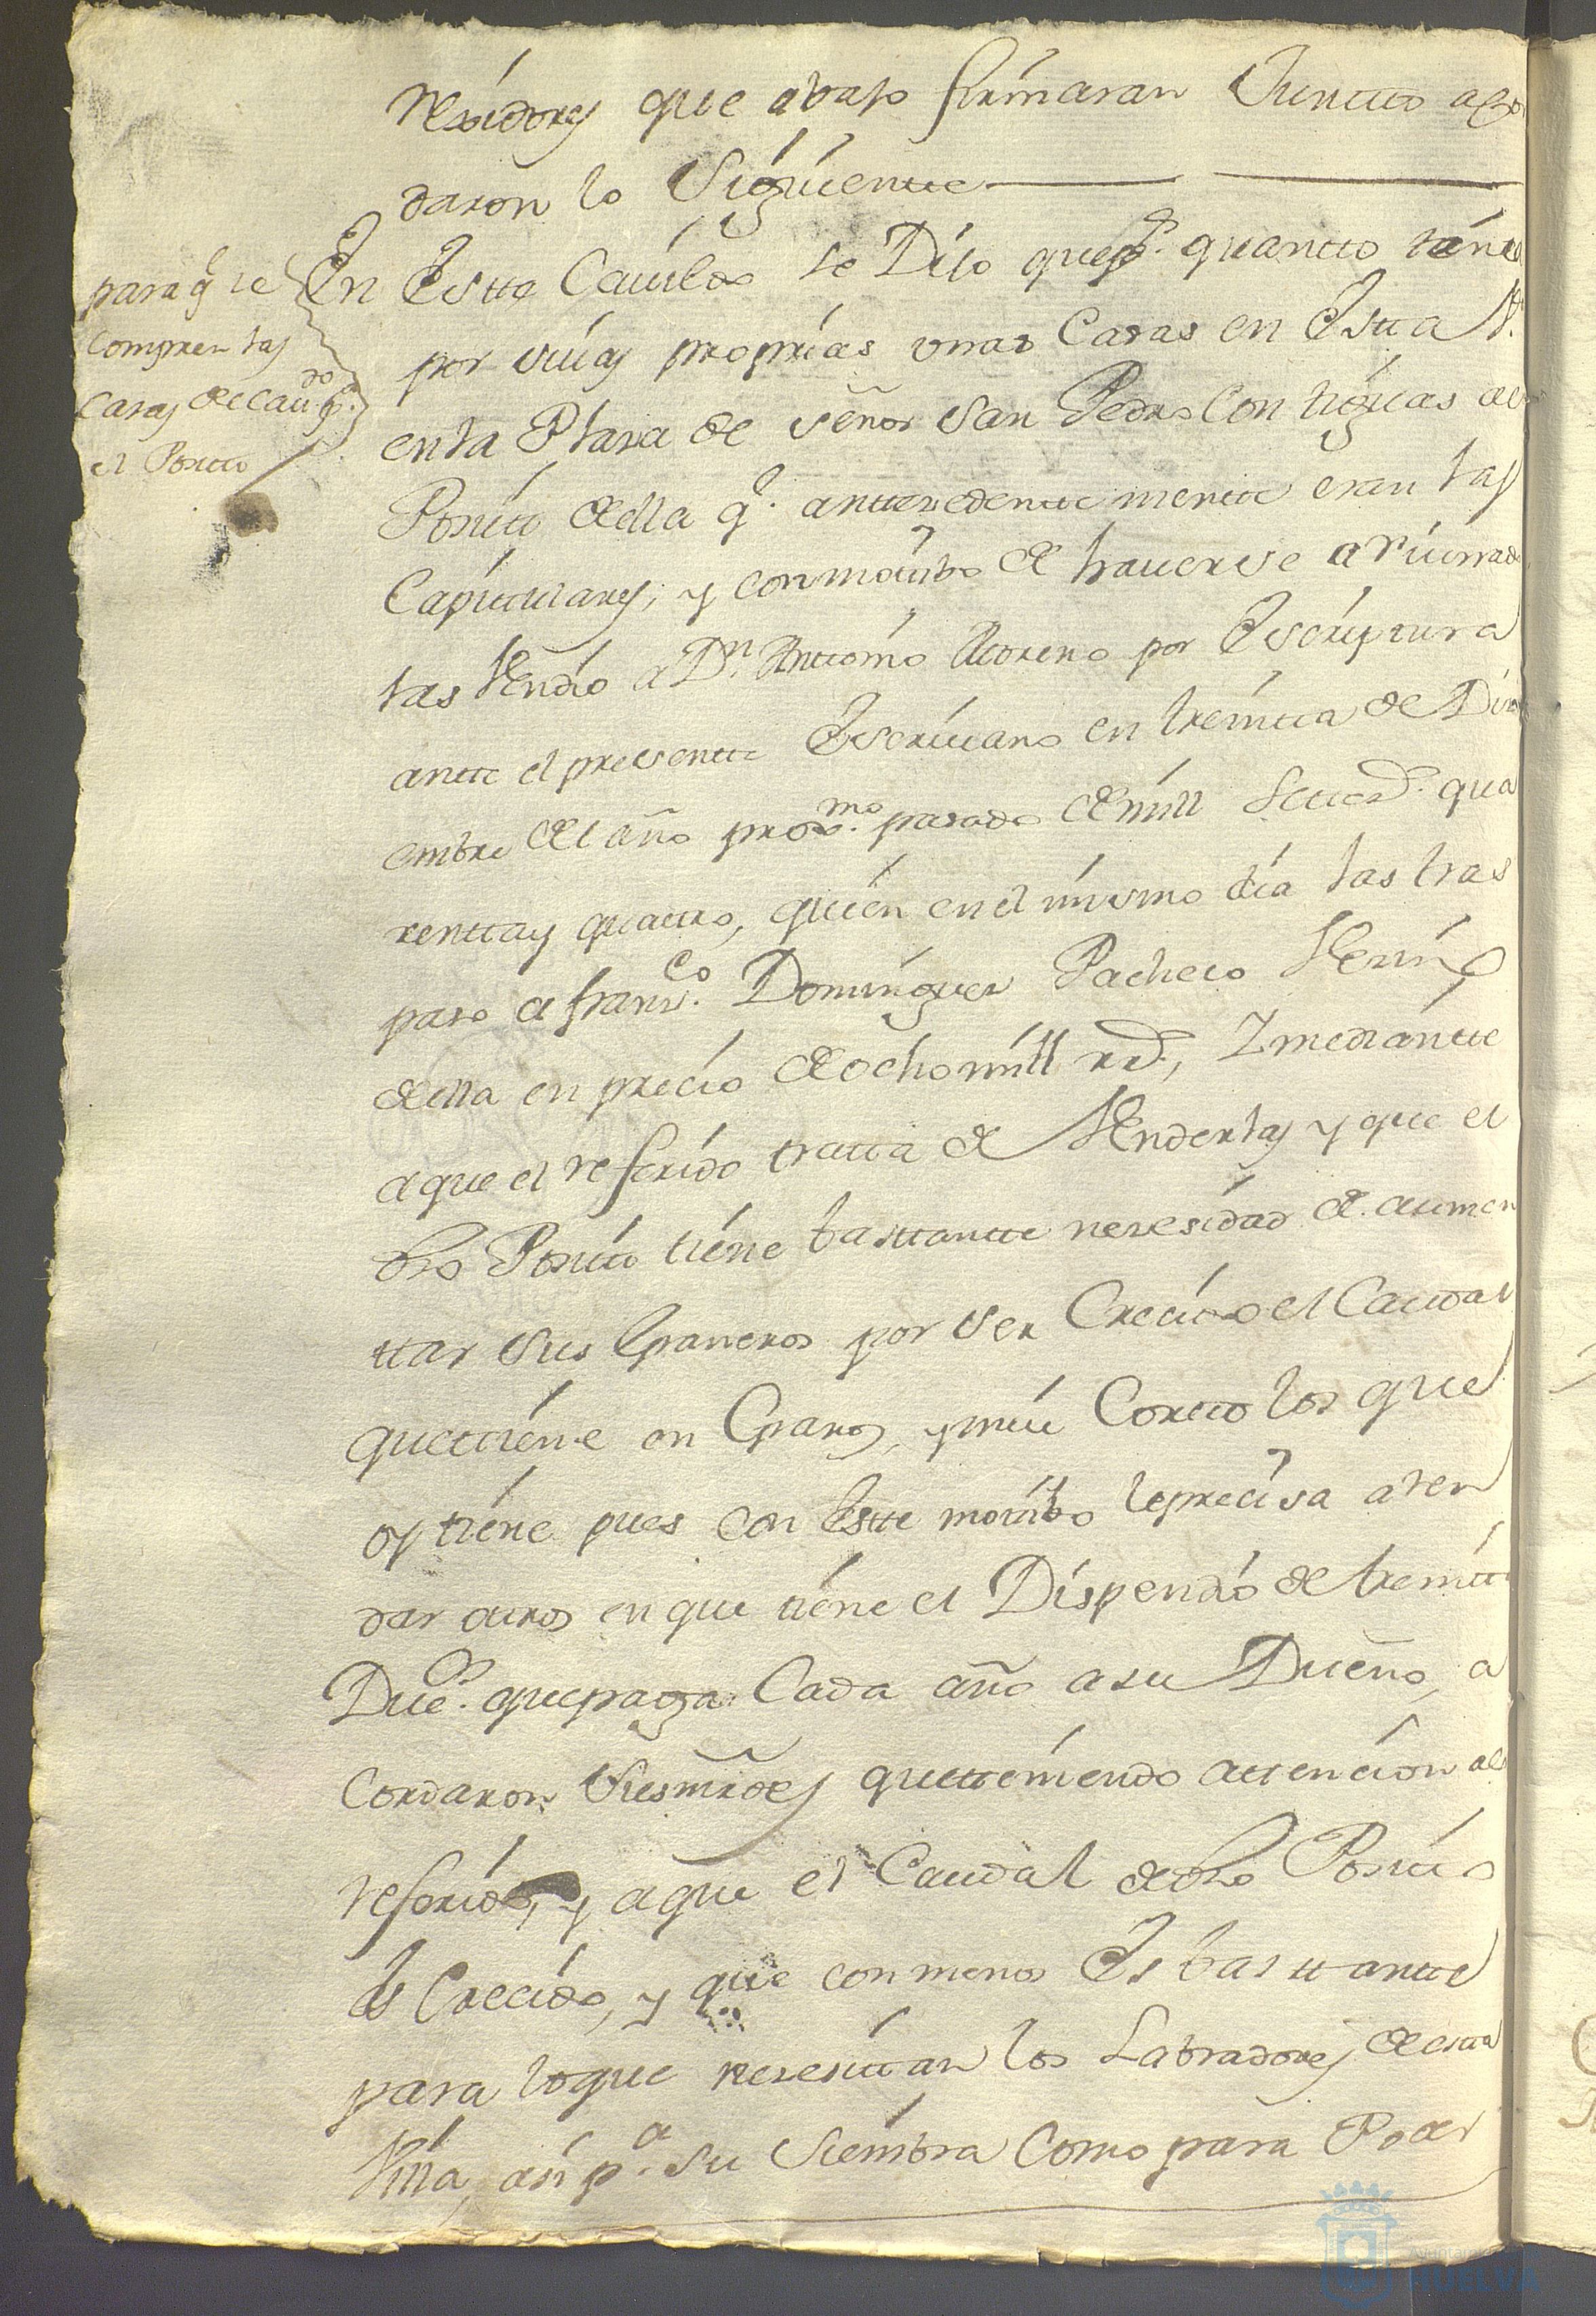 Rexidores que abajo firmaran Juntto acor
daron lo Siguiente
para q̃ se
Compren las
Casas de Cau.do p.a
el Positto
En Estte Cauildo se Dijo que p.r quantto tenia
por suias proprias unas Casas en Esta V.a
en la Plaza de señor San Pedro Contiguas al
Positto de ella q.e anttezedenttementte eran las
Capitulares; y con motibo de hauerse arruinado
las Vendio a D.n Anttonio Moreno por Escriptura
antte el presentte Escriuano en treintta de Dizi
embre del año prox.mo pasado de mill Settez.s qua
rentta y quattro, quien en el mismo dia las tras
paso a fran.co Dominguez Pacheco Vezino
de ella en precio de ocho mill r.s, Y mediantte
a que el referido tratta de Venderlas y que el
dho Positto tiene basttantte nezesidad de aumen
ttar sus Graneros por ser Crecido el Caudal
que ttiene en Granos, y mui Cortto los que
oy tiene pues con Estte motibo le precisa arren
dar ottros en que tiene el Dispendio de treintta
Duc.s que paga Cada año a su Dueño, a
Cordaron Sus mrdes que tteniendo attencion al
referido, y a que el Caudal de dho Positto
Es Crecido, y que con menos Es basttantte
para lo que nezesitan los Labradores de esta
Villa, asi p.a su Siembra Como para Poder
Ayuntamiento de
HUELVA